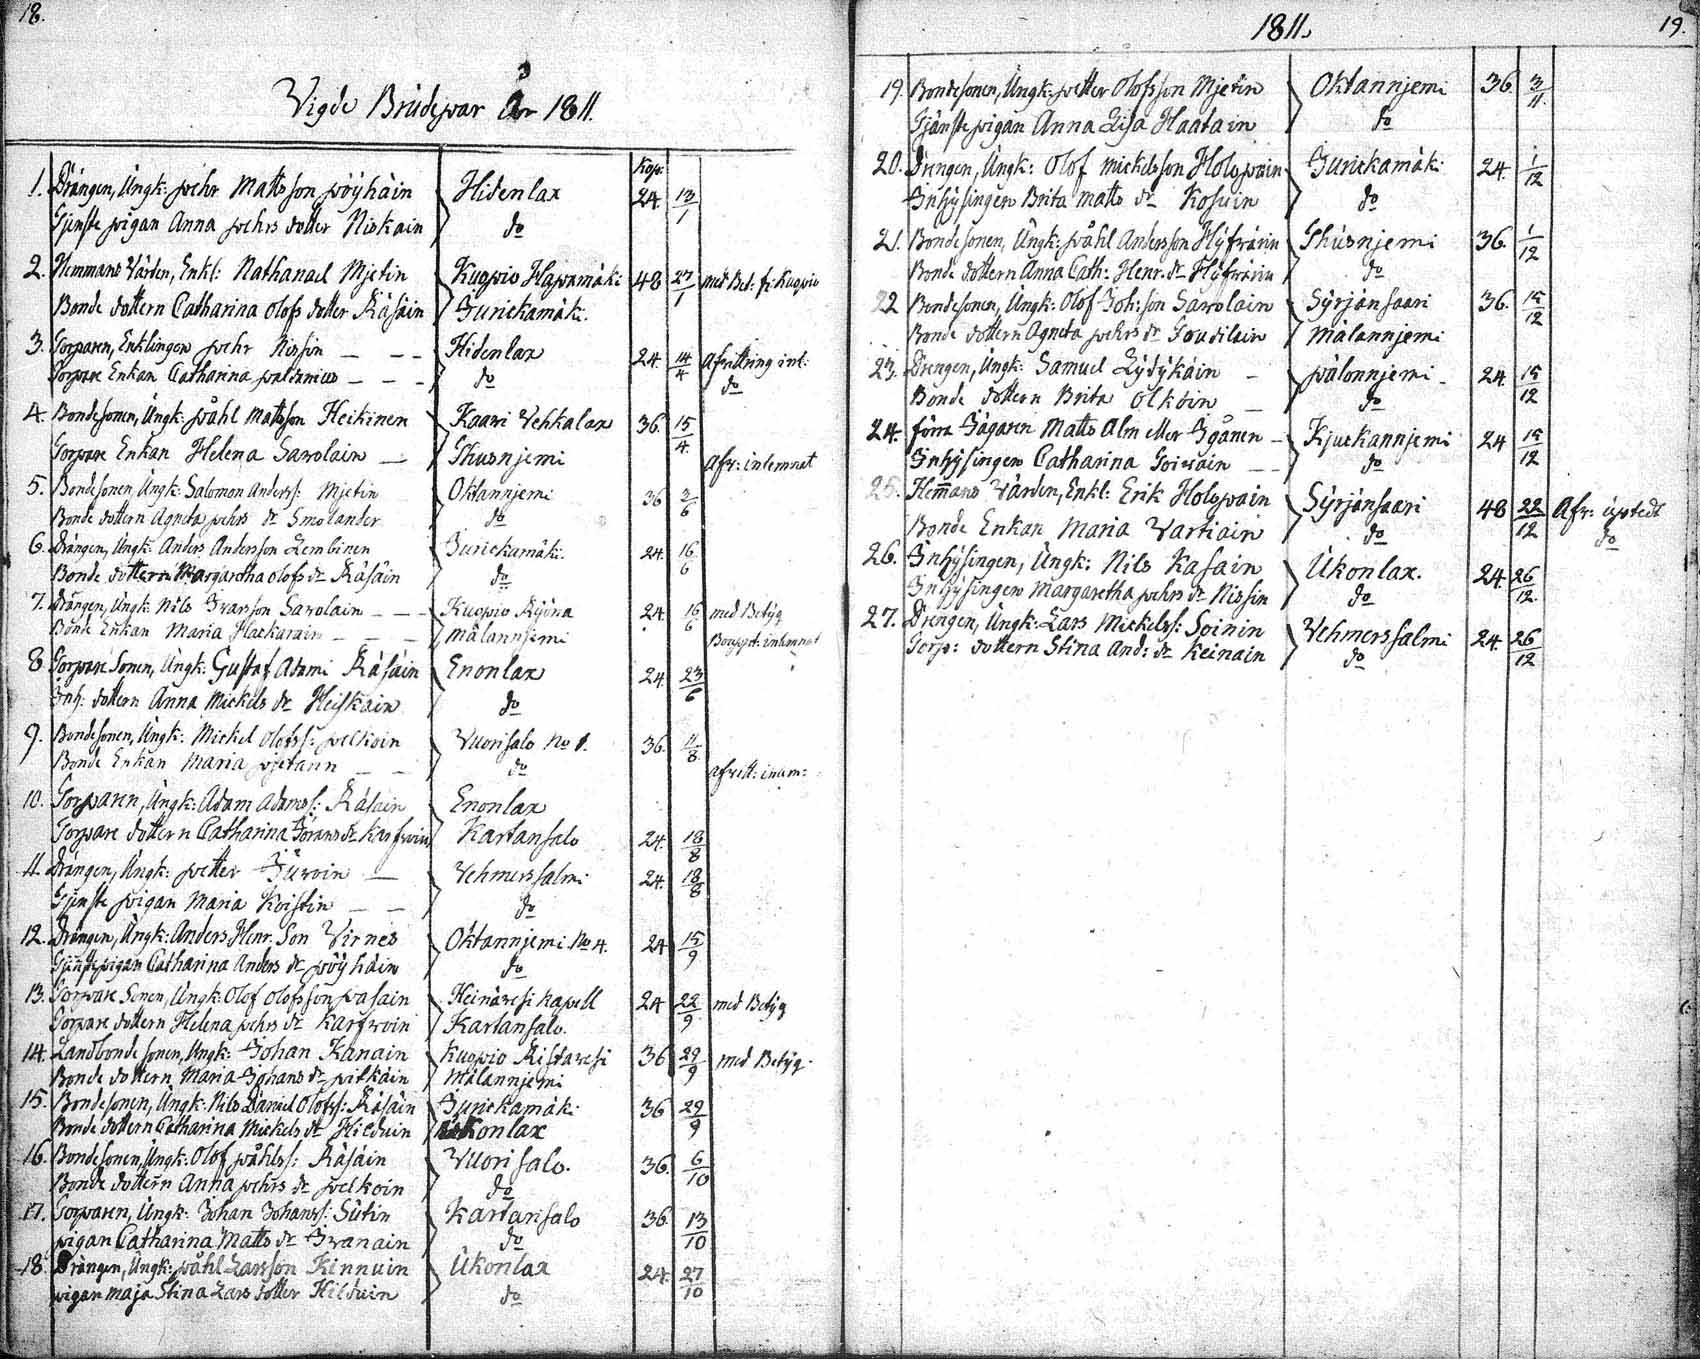 18.
Vigde Brudepar År 1811.
Kop:
1. Drängen, Ungk: Pehr Mattsson Pöyhäin Hidenlax 24 13/1
Tjenste pigan Anna Pehrs dotter Niskain do
2. Hemmans Värden, Enkl: Nathanael Mjetin Kuopio Hapamäki 48 27/1 med Bet: fr: Kuopio
Bonde dottern Catharina Olofs dotter Räsäin Jurickamäk:
3. Torparen, Enklingen Pehr Nissin Hidenlax 24. 14/4 Afvittring inl:
Torpare Enkan Catharina do do
4. Bondesonen, Ungk: Påhl Mattsson Heikinen Kaavi Vehkalax 36. 15/4.
Torpare Enkan Helena Savolain Ihusnjemi Afv: inlemnat
5. Bondesonen, Ungk: Salomon Anderss: Mjetin Oktannjemi 36 2/6
Bonde dottern Agneta Pehrs dr Smolander do
6. Drängen, Ungk: Anders Andersson Lembinen Jurickamäk: 24. 16/6
Bonde dottern Margaretha Olofs dr Räsäin do
7. Drängen, Ungk: Nils Ivarsson Savolain Kuopio 24. 16/6 med Betyg
Bonde Enkan Maria Hackarain Mälannjemi
8 Torpare Sonen, Ungk: Gustaf Adami Räsäin Enonlax 24. 23/6
Inh: dottern Anna Mickels dr Heiskain do
9. Bondesonen, Ungk: Mickel Olofss: Pelkoin Vuorisalo No 1. 36. 11/8
Bonde Enkan Maria do afvitt: inlem:
10. Torparen, Ungk: Adam Adamss: Räsäin Enonlax
Torpare dottern Catharina Görans dr Karfvoin Kartansalo 24. 18/8
11. Drängen, Ungk: Petter Jurvoin Vehmerssalmi 24. 18/8
Tjenste pigan Maria Koistin do
12. Drängen, Ungk: Anders Henr. Son Virnes Oktannjemi No 4. 24 15/9
Tjenstepigan Catharina Anders dr Pöyhäin do
13. Torpare Sonen, Ungk: Olof Olofsson Pasain Heinävesi Kapell 24 22/9 med Betyg
Torpare dottern Helena Pehrs dr Karfvoin Kartansalo.
14. Landbonde sonen, Ungk: Johan Kanain Kuopio Ristavesi 36 29/9 med Betyg.
Bonde dottern Maria Johans dr Pitkäin Mälannjemi
15. Bondesonen, Ungk: Nils Daniel Olofss: Räsäin Jurickamäk: 36 29/9
Bonde dottern Catharina Mickels dr Hilduin Ukonlax
16. Bondesonen, Ungk: Olof Påhlss: Räsäin Vuorisalo. 36. 6/10
Bonde dottern Anna Pehrs dr Pelkoin do
17. Torparen, Ungk: Johan Johanss: Sutin Kartansalo 36. 13/10
Pigan Catharina Matts dr Ivanain do
18. Drängen, Ungk: Påhl Larsson Kinnuin Ukonlax 24. 27/10
Pigan Maja Stina Lars dotter Hilduin do
1811. 19.
19. Bondesonen, Ungk: Petter Olofsson Mjetin Oktannjemi 36. 3/11.
Tjänste pigan Anna Lisa Haatain do
20. Drengen, Ungk: Olof Mickelsson Holopain Jurickamäk: 24. 1/12
Inhysingen Brita Matts dr Kosuin do
21. Bondesonen, Ungk: Påhl Andersson Hyfvärin Ihusnjemi 36. 1/12
Bonde dottern Anna Cath: Henr. dr Hyfvärin do
22 Bondesonen, Ungk: Olof Joh:son Savolain Syrjänsaari 36. 15/12
Bonde dottern Agneta Pehrs dr Mälannjemi
23. Drengen, Ungk: Samuel Lydykäin Pälonnjemi 24. 15/12
Bonde dottern Brita Olkoin do
24. förra Jägaren Matts Alm eller Kjurkannjemi 24 15/12
Inhysingen Catharina Toivain do
25. Hem̄ans Värden, Enkl: Erik Holopain Syrjänsaari 48 22/12 Afv: upstedt
Bonde Enkan Maria Vartiain do do
26. Inhysingen, Ungk: Nils Kasain Ukonlax. 24. 26/12.
Inhysingen Margaretha Pehrs dr Nissin do
27. Drengen, Ungk: Lars Mickelss: Soinin Vehmerssalmi 24. 26/12
Torp: dottern Stina And: dr Keinain do